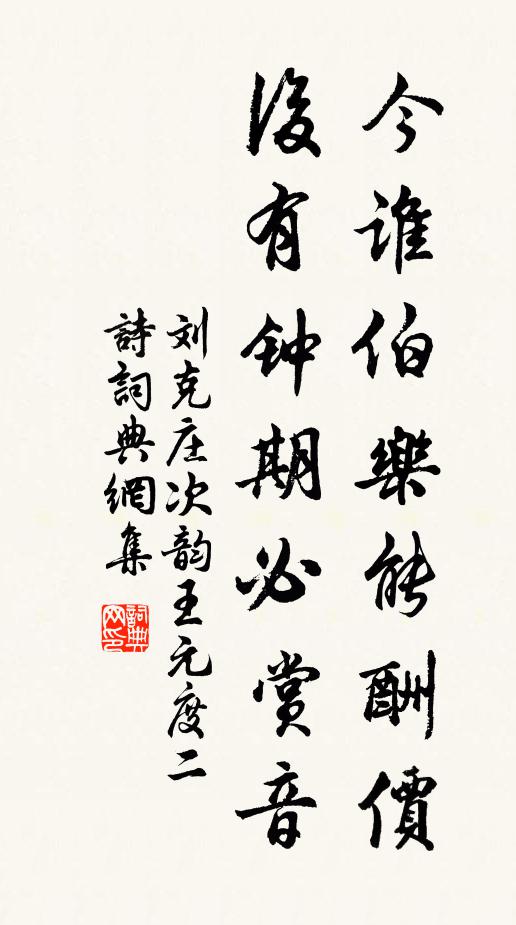 今誰伯樂能酬價
後有钟期必赏音
刘克庄次韵王元度二
詩詞典網集
詞典网印